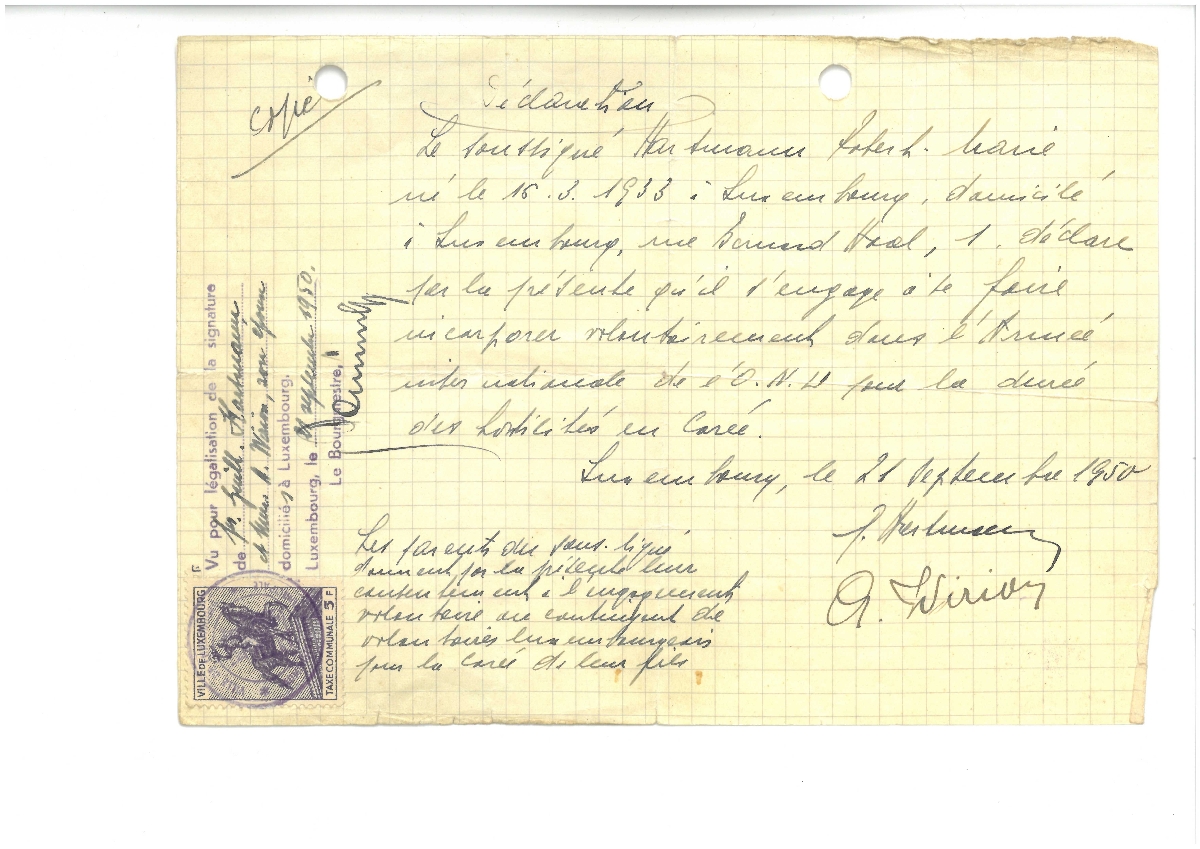 copié
Déclaration
Le soussigné Hartmann Robert-Marie
né le 15.3.1933 à Luxembourg, domicilé
à Luxembourg, rue Bernard Haal, 1. déclare
par la présente qu'il s'engage à se faire
incorporer volontairement dans l'Armée
internationale de l'O.N.U pour la durée
des hostilités en Corée.
Luxembourg, le 21 septembre 1950
Hartmann
A. Wirion
Les parents du sous-signé
donnent par la présente leur
consentement à l'engagement
volontaire au contingent de
volontaires luxembourgeois
pour la Corée de leur fils
Vu pour légalisation de la signature
de M. Guill. Hartmann
et A. Wirion, son épouse
domiciliés à Luxembourg.
Luxembourg, le 21 septembre 1950.
Le Bourgmestre,
VILLE DE LUXEMBOURG
TAXE COMMUNALE 5 F